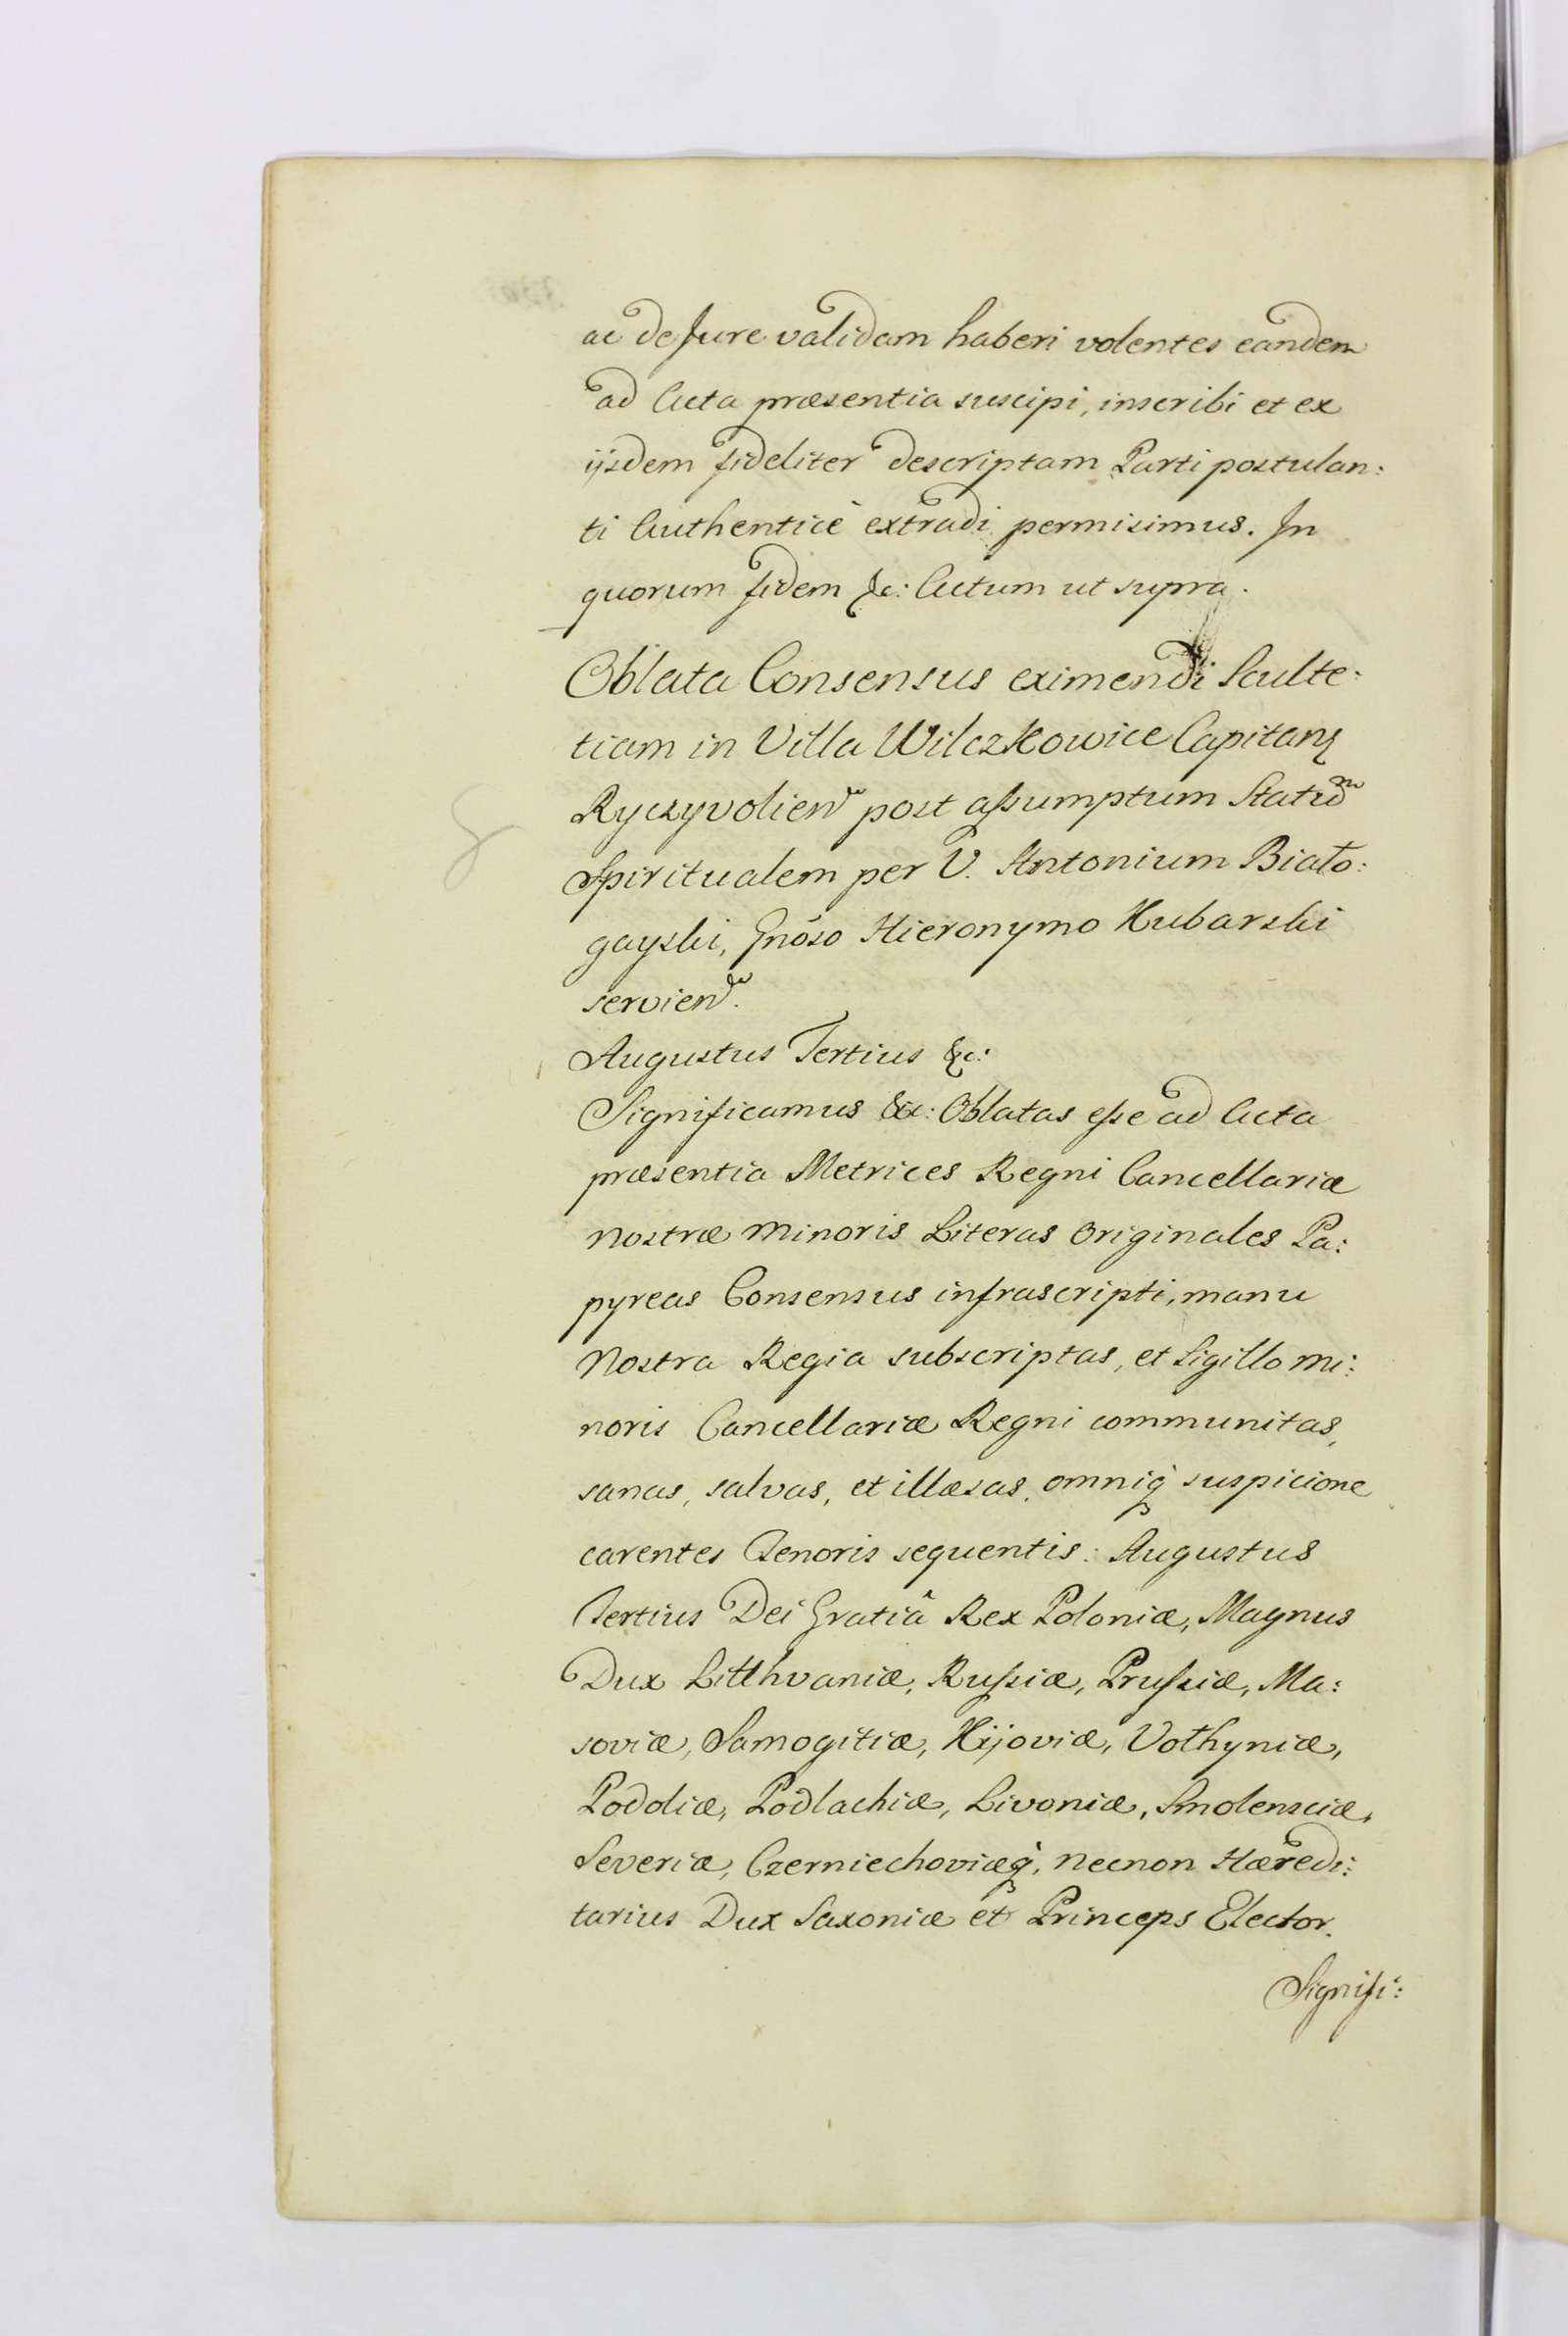 ac de Jure validam haberi volentes eandem
ad Acta præsentia suscipi, inscribi et ex
ijsdem fideliter descriptam Parti postulan:
ti Authenticè extradi permisimus. In
quorum fidem &c: Actum ut supra.
Oblata Consensus eximendi Sculte:
tiam in Villa Wilczkowice Capitan
Ryczyvolien post assumptum Statum
Spiritualem per V. Antonium Biało:
gayski, Gnoso Hieronymo Kubarski
servien.
Augustus Tertius &c:
Significamus &c: Oblatas esse ad Acta
præsentia Metrices Regni Cancellariæ
Nostræ Minoris Literas Originales Pa:
pyreas Consensus infrascripti, manu
Nostra Regia subscriptas, et Sigillo mi:
noris Cancellariæ Regni communitas,
sanas, salvas, et illæsas, omniq suspicione
carentes Tenoris sequentis: Augustus
Tertius Dei Gratiâ Rex Poloniæ, Magnus
Dux Litthvaniæ, Russiæ, Prussiæ, Ma:
soviæ, Samogitiæ, Kijoviæ, Vołhyniæ,
Podoliæ, Podlachiæ, Livoniæ, Smolensciæ,
Severiæ, Czerniechoviæq, necnon Hæredi:
tarius Dux Saxoniæ et Princeps Elector.
Signifi: